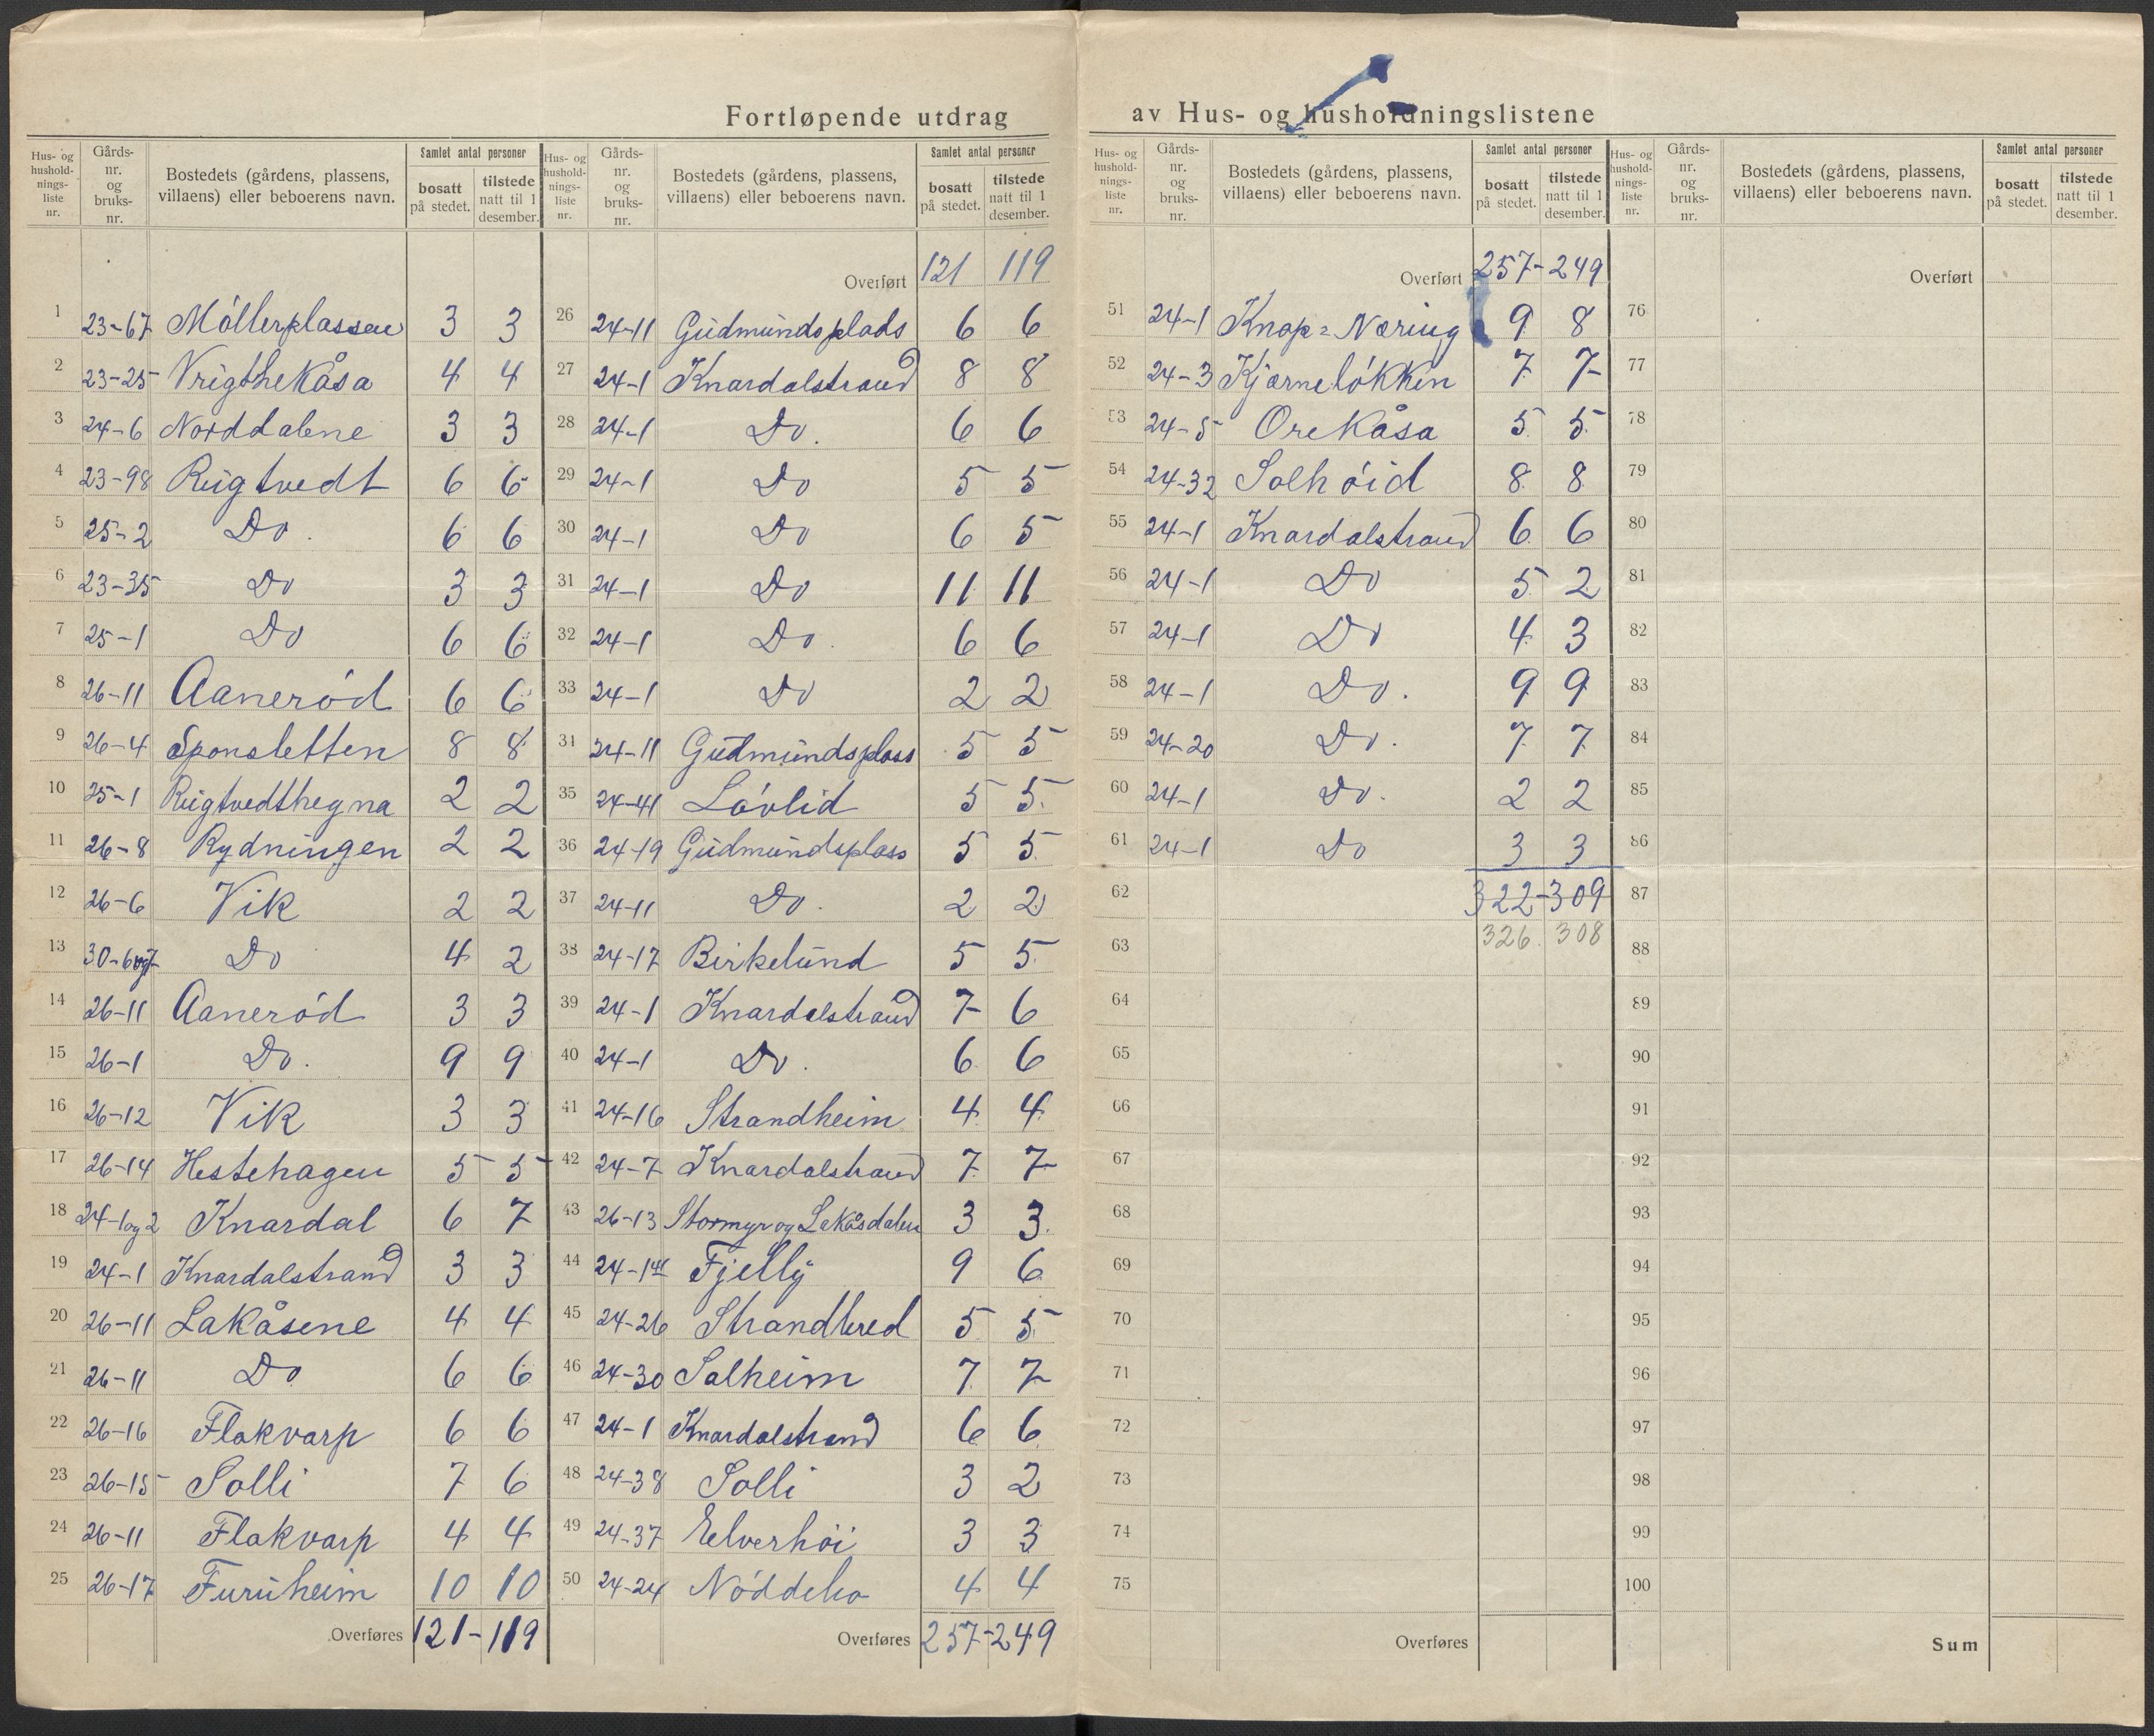 Fortløpende utdrag av Hus- og husholdningslistene
Hus- og hushold-nings-liste nr. Gårds-nr. og bruks-nr. Bostedets (gårdens, plassens, villaens) eller beboerens navn. Samlet antal personer bosatt på stedet. tilstede natt til 1 desember.
1 23-67 Möllerplassen 3 3
2 23-25 Vrigthekåsa 4 4
3 24-6 Norddalene 3 3
4 23-98 Rugtvedt 6 6
5 25-2 Do. 6 6
6 23-35 Do 3 3
7 25-1 Do 6 6
8 26-11 Aaneröd 6 6
9 26-4 Sponsletten 8 8
10 25-1 Rugtvedthegna 2 2
11 26-8 Rydningen 2 2
12 26-6 Vik 2 2
13 30-6og7 Do 4 2
14 26-11 Aaneröd 3 3
15 26-1 Do. 9 9
16 26-12 Vik 3 3
17 26-14 Hestehagen 5 5
18 24-1og2 Knardal 6 7
19 24-1 Knardalstrand 3 3
20 26-11 Lakåsene 4 4
21 26-11 Do 6 6
22 26-16 Flakvarp 6 6
23 26-15 Solli 7 6
24 26-11 Flakvarp 4 4
25 26-17 Furuheim 10 10
Overføres 121-119
Hus- og hushold-nings-liste nr. Gårds-nr. og bruks-nr. Bostedets (gårdens, plassens, villaens) eller beboerens navn. Samlet antal personer bosatt på stedet. tilstede natt til 1 desember.
Overført 121 119
26 24-11 Gudmundsplads 6 6
27 24-1 Knardalstrand 8 8
28 24-1 Do. 6 6
29 24-1 Do 5 5
30 24-1 Do 6 5
31 24-1 Do 11 11
32 24-1 Do. 6 6
33 24-1 Do 2 2
34 24-11 Gudmundsplass 5 5
35 24-41 Lövlid 5 5
36 24-19 Gudmundsplass 5 5
37 24-11 Do. 2 2
38 24-17 Birkelund 5 5
39 24-1 Knardalstrand 7 6
40 24-1 Do. 6 6
41 24-16 Strandheim 4 4
42 24-7 Knardalstrand 7 7
43 26-13 Stormyr og Lakåsdalen 3 3
44 Fjelly 9 6
45 24-26 Strandbred 5 5
46 24-30 Solheim 7 7
47 24-1 Knardalstrand 6 6
48 24-38 Solli 3 2
49 24-37 Eelverhöi 3 3
50 24-24 Nöddebo 4 4
Overføres 257-249
Hus- og hushold-nings-liste nr. Gårds-nr. og bruks-nr. Bostedets (gårdens, plassens, villaens) eller beboerens navn. Samlet antal personer bosatt på stedet. tilstede natt til 1 desember.
Overført 257-249
51 24-1 Knap=Næring 9 8
52 24-3 Kjærnelökken 7 7
53 24-5 Orekåsa 5 5
54 24-32 Solhöid 8 8
55 24-1 Knardalstrand 6 6
56 24-1 Do 5 2
57 24-1 Do 4 3
58 24-1 Do. 9 9
59 24-20 Do. 7 7
60 24-1 Do. 2 2
61 24-1 Do 3 3
62 322-309
63 326 308
64
65
66
67
68
69
70
71
72
73
74
75
Overføres
Hus- og hushold-nings-liste nr. Gårds-nr. og bruks-nr. Bostedets (gårdens, plassens, villaens) eller beboerens navn. Samlet antal personer bosatt på stedet. tilstede natt til 1 desember.
Overført
76
77
78
79
80
81
82
83
84
85
86
87
88
89
90
91
92
93
94
95
96
97
98
99
100
Sum